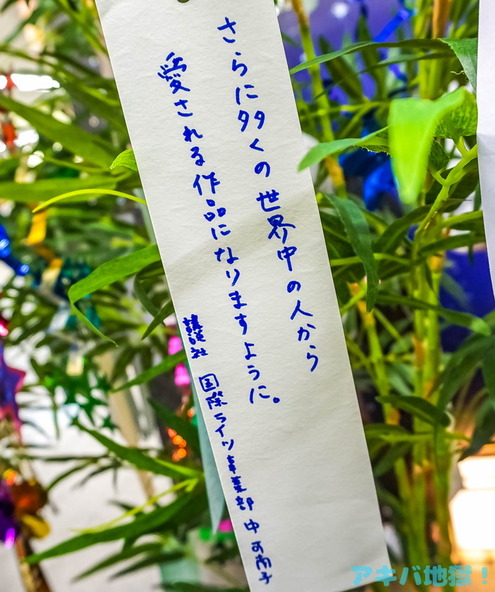 さらに多くの世界中の人から
愛される作品になりますように。
講談社 国際ライツ事業部 中 可南子
アキバ地獄！